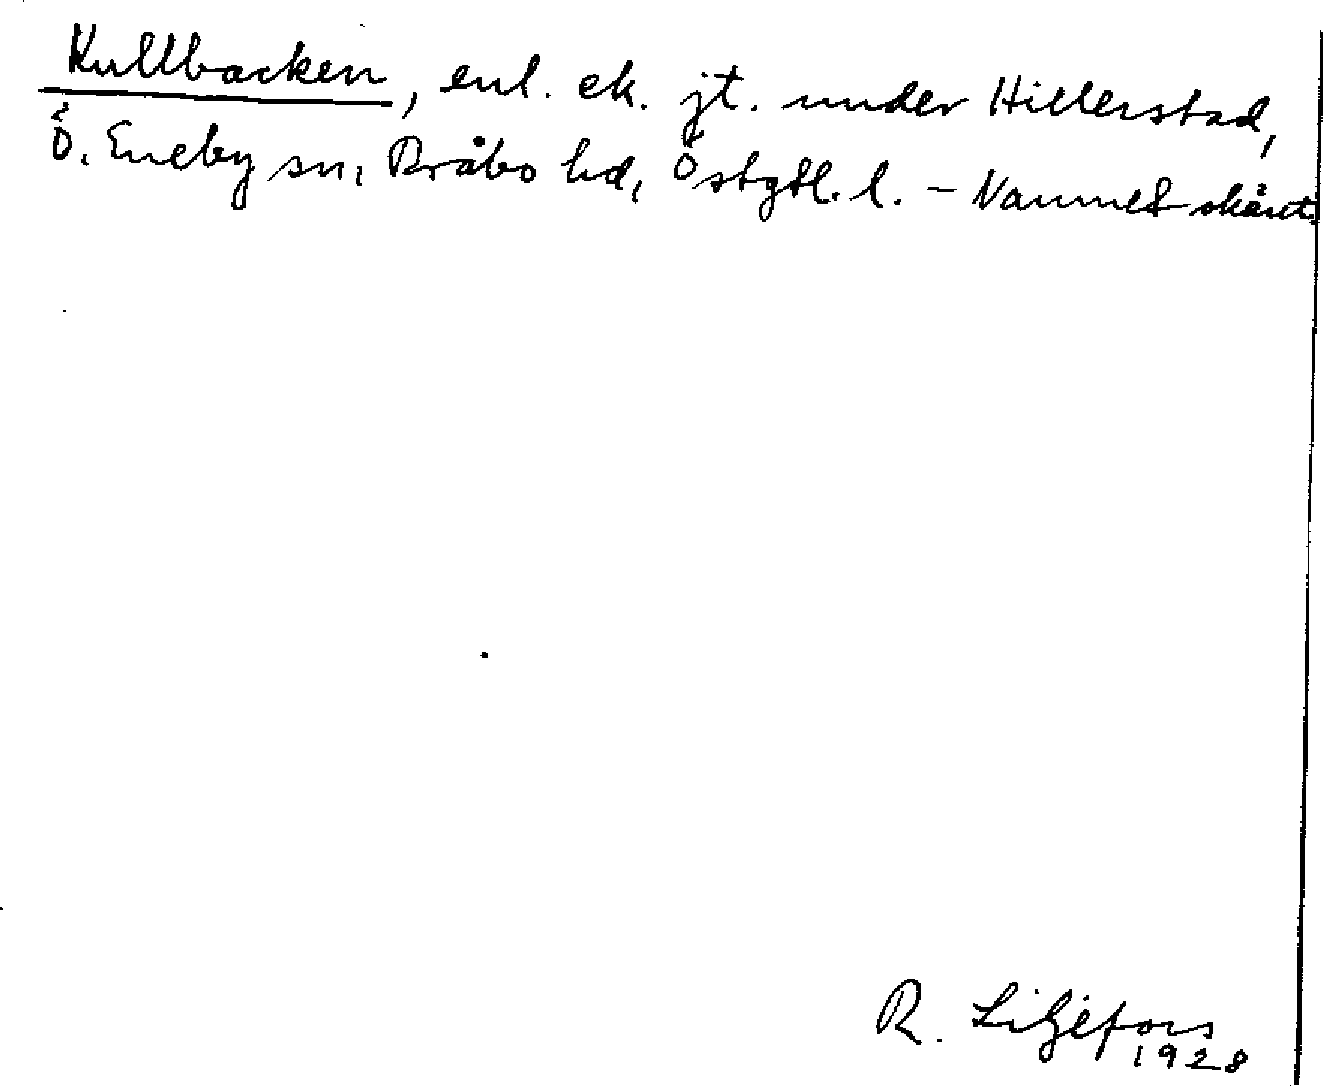 Kullbacken, enl. ek. jt. under Hillerstad,
Ö. Eneby sn, Bråbo hd, Östgtl. l. – Namnet okänt.
R. Liljefors
1928